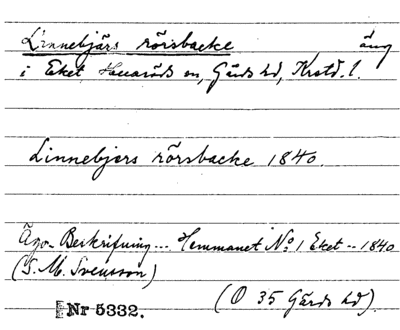 Linnebjärs rörsbacke äng
i Eket, Huaröds sn, Gärds hd, Krstd. l.
Linnebjers rörsbacke 1840.
Ägo-Beskrifning... Hemmanet No: 1 Eket -- 1840
(S. M. Svensson)
(O 35 Gärds hd).
Nr 5332.